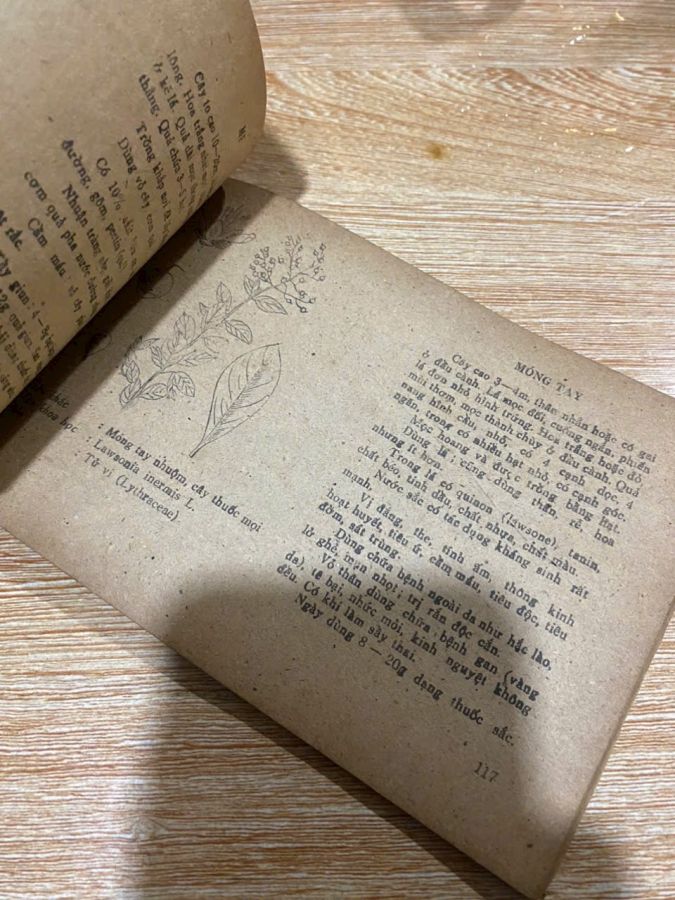 Cây to cao 10—20m,
lông. Hoa trắng như
ở kẽ lá. Quả dài mọc
thẳng. Quả chứa 3-5
Trồng khắp nơi
Dùng vỏ cây
Có 10%
đường, gôm, pectin
Nhuận tràng, nhẹ
cơm quả pha nước đường
Cầm máu vỏ cây
Tẩy giun : 4 —
khác
khoa học
: Móng tay nhuộm, cây thuốc mọi
: Lawsonia inermis L.
Tử vi (Lythraceae)
MÓNG TAY
Cây cao 3—4m, thân nhẵn hoặc có gai
ở đầu cành. Lá mọc đối, cuống ngắn, phiến
lá đơn nhỏ hình trứng. Hoa trắng hoặc đỏ,
mùi thơm, mọc thành chùy ở đầu cành. Quả
nang hình cầu, nhỏ, có 4 cạnh dọc, 4
ngăn, trong có nhiều hạt nhỏ, có cạnh góc.
Mọc hoang và được trồng bằng hạt.
Dùng lá ; cũng dùng thân, rễ, hoa
nhưng ít hơn.
Trong lá có quinon (lawsone), tanin,
chất béo, tinh dầu, chất nhựa, chất màu.
Nước sắc có tác dụng kháng sinh rất
mạnh.
Vị đắng, the, tính ấm, thông kinh
hoạt huyết, tiêu ứ, cầm máu, tiêu độc, tiêu
đờm, sát trùng.
Dùng chữa bệnh ngoài da như hắc lào,
lở ghẻ, mụn nhọt ; trị rắn độc cắn.
Vỏ thân dùng chữa bệnh gan (vàng
da), tê bại, nhức mỏi, kinh nguyệt không
đều. Có khi làm sẩy thai.
Ngày dùng 8 — 20g dạng thuốc sắc.
117